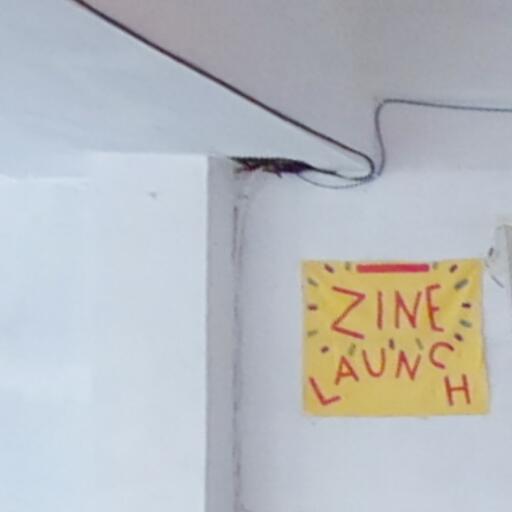 ZINE
LAUNCH